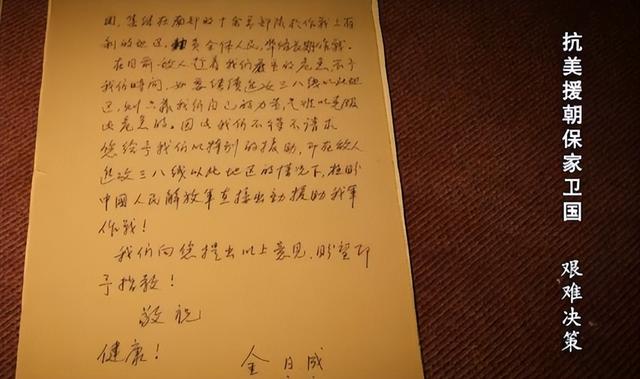 围，集结在南部的十余万部队于作战上有
利的地区，动员全体人民，准备长期作战。
在目前敌人趁着我们严重的危急，不予
我们时间，如要继续进攻三八线以北地
区，则只靠我们自己的力量，是难以克服
此危急的。因此我们不得不请求
您给予我们以特别的援助，即在敌人
进攻三八线以北地区的情况下，极盼
中國人民解放军直接出动援助我军
作战！
我们向您提出以上意见，盼望即
予指教！
敬祝
健康！
金日成
抗美援朝保家卫国 艰难决策